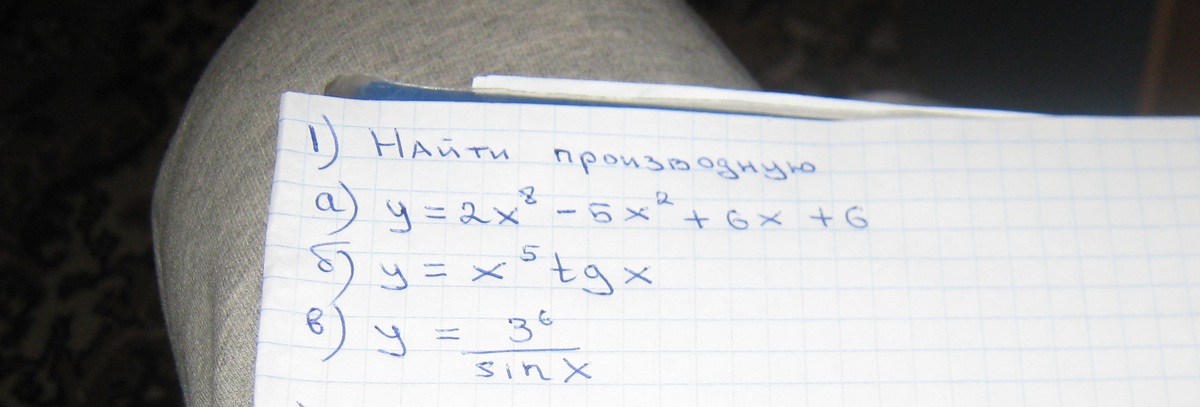 1) Найти производную
а) y = 2x⁸ - 5x² + 6x + 6
б) y = x⁵ tg x
в) y = 3⁶ / sin x